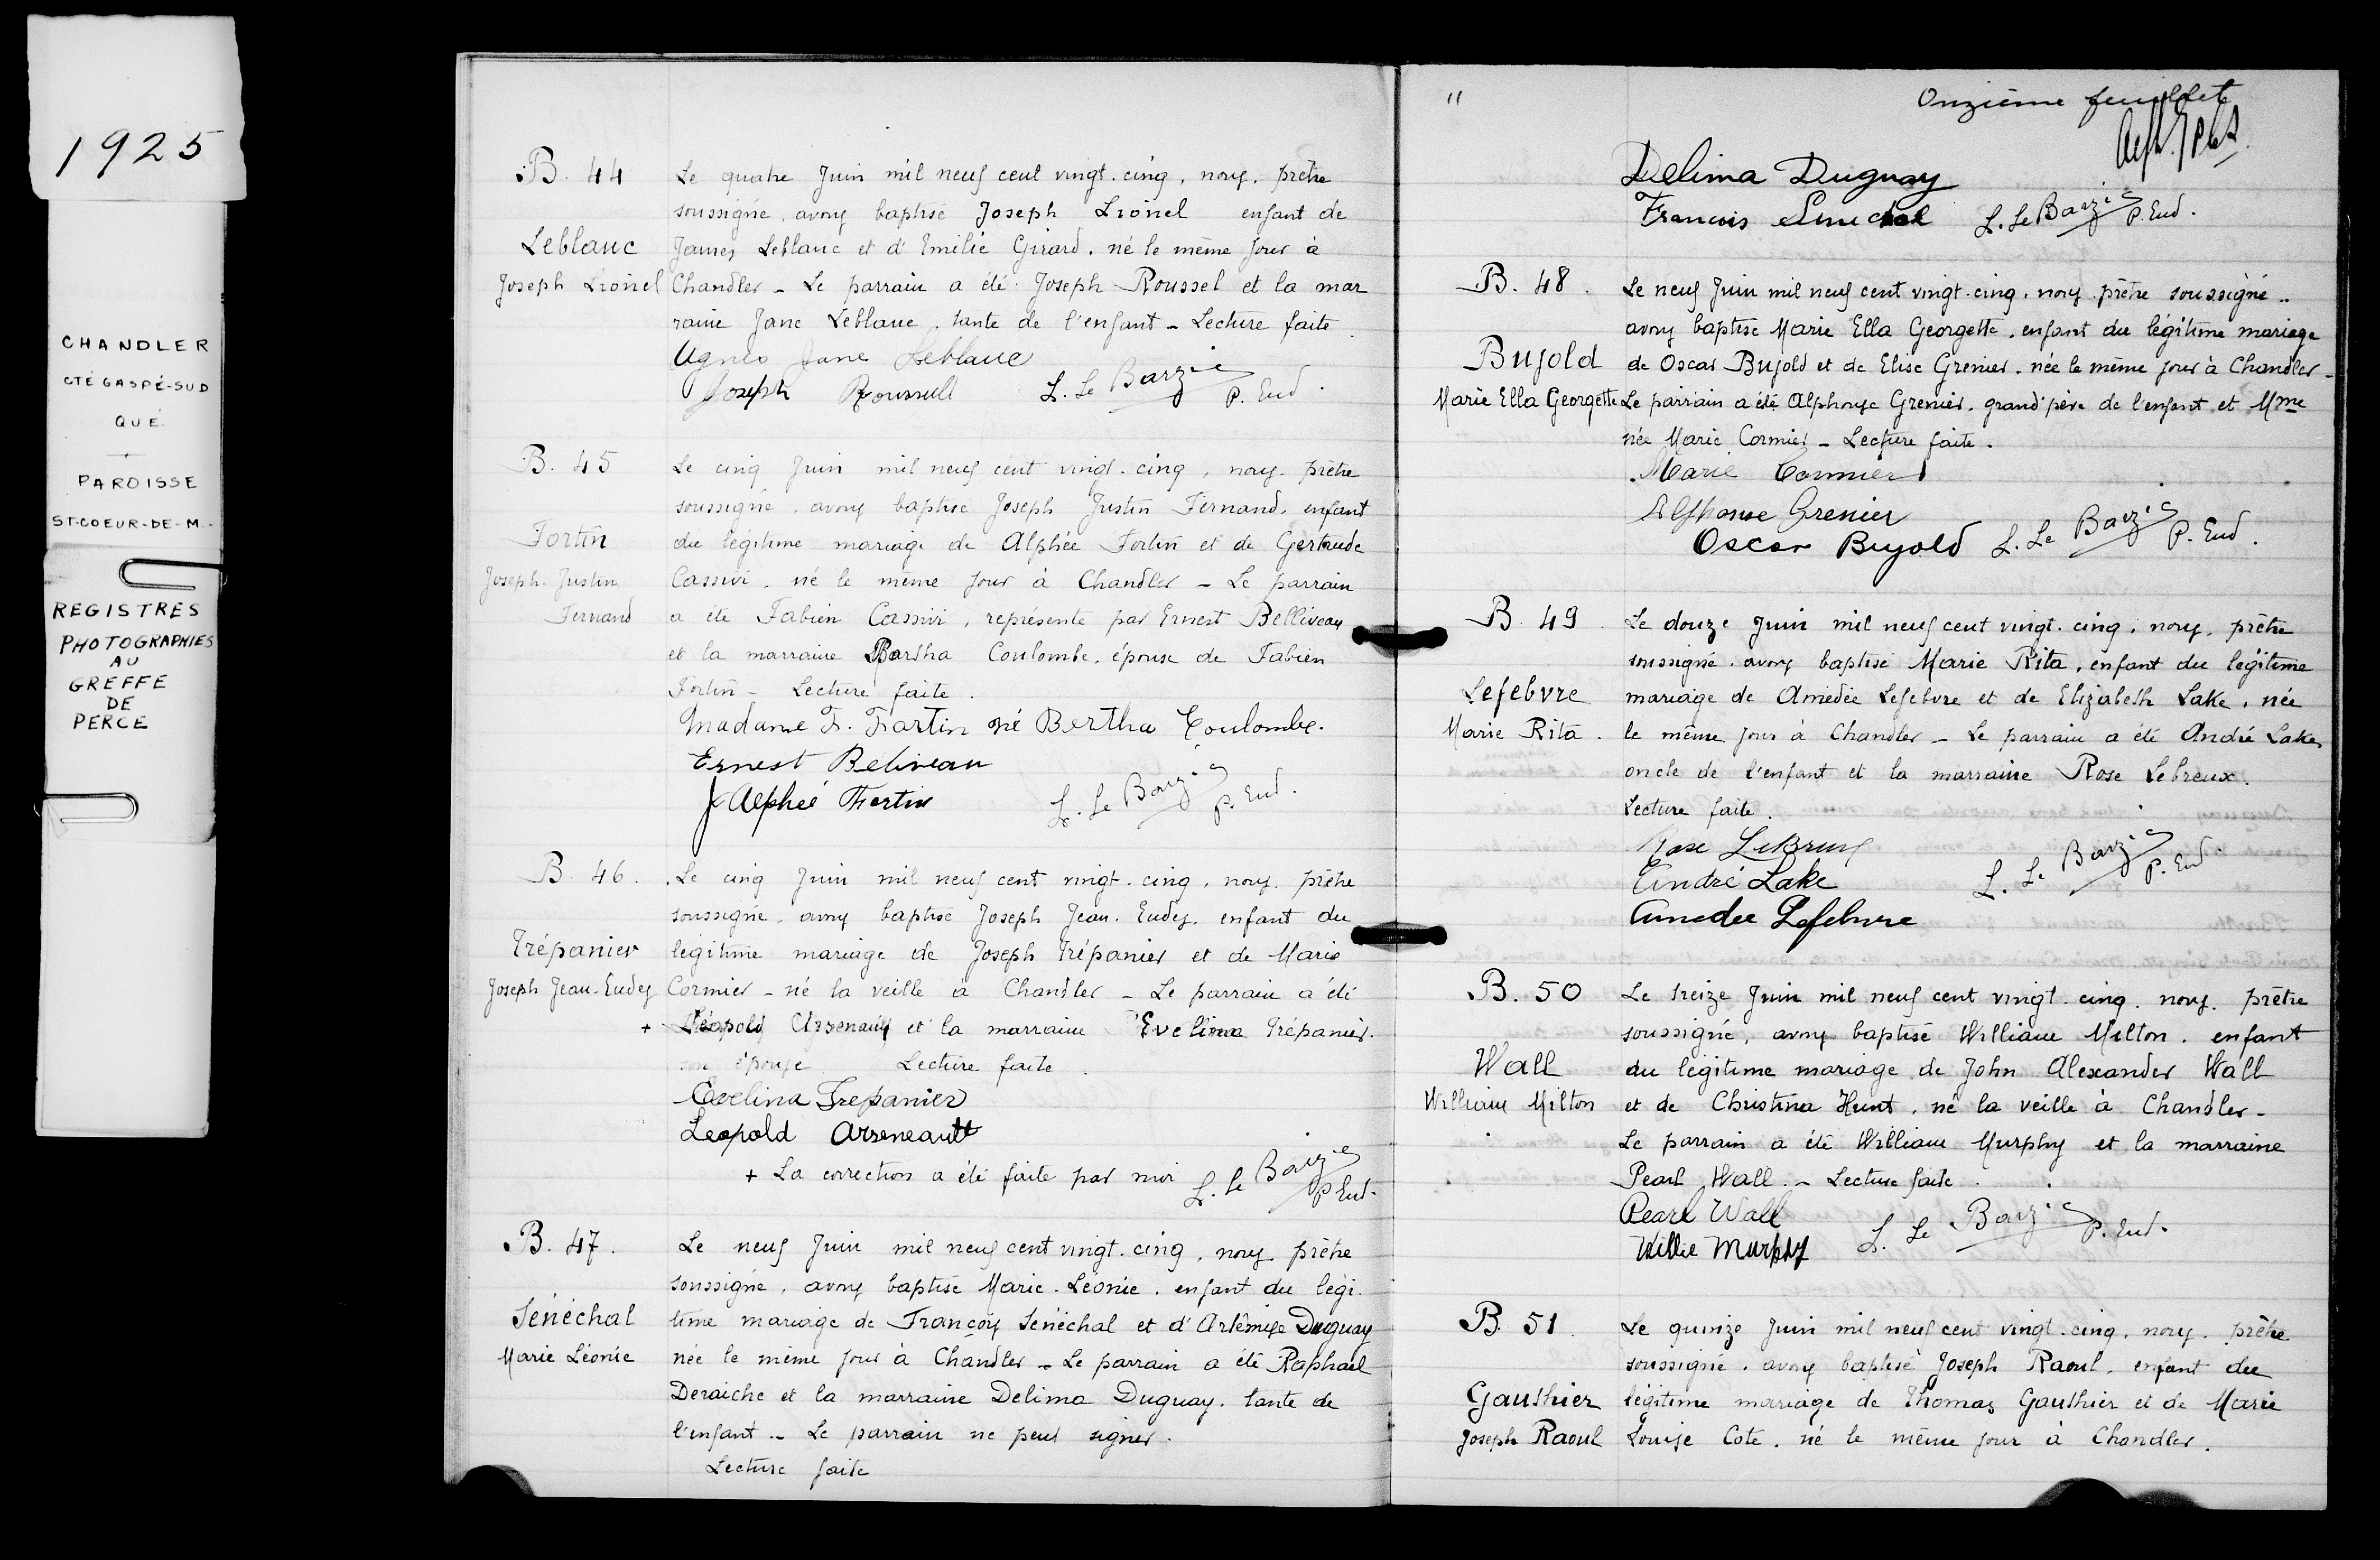 1925
CHANDLER
CTÉ GASPÉ-SUD
QUÉ.
PAROISSE
ST-COEUR-DE-M.-
REGISTRES
PHOTOGRAPHIES
AU
GREFFE
DE
PERCE
B. 44
Leblanc
Joseph Lionel
Le quatre Juin mil neuf cent vingt-cinq, nous, prêtre
soussigné, avons baptisé Joseph Lionel enfant de
James Leblanc et d'Emilie Girard, né le même jour à
Chandler - Le parrain a été Joseph Roussel et la mar
raine Jane Leblanc, tante de l'enfant - Lecture faite
Agnes Jane Leblanc
Joseph Roussell L. Le Barzic P. Eud.
B. 45
Fortin
Joseph Justin
Fernand
Le cinq Juin mil neuf cent vingt-cinq, nous, prêtre
soussigné, avons baptisé Joseph Justin Fernand, enfant
du légitime mariage de Alphée Fortin et de Gertrude
Cassivi, né le même jour à Chandler - Le parrain
a été Fabien Cassivi, représenté par Ernest Belliveau
et la marraine Bertha Coulombe, épouse de Fabien
Fortin - Lecture faite.
Madame F. Fortin né Bertha Coulombe.
Ernest Beliveau
J Alphée Fortin L. Le Barzic P. Eud.
B. 46.
Trépanier
Joseph Jean-Eudes
Le cinq Juin mil neuf cent vingt-cinq, nous, prêtre
soussigné, avons baptisé Joseph Jean-Eudes, enfant du
légitime mariage de Joseph Trépanier et de Marie
Cormier - né la veille à Chandler - Le parrain a été
+ Léopold Arsenault et la marraine Evelina Trépanier.
son épouse Lecture faite.
Evelina Trepanier
Leopold Arseneault
+ La correction a été faite par moi L. Le Barzic P. Eud.
B. 47.
Sénéchal
Marie Léonie
Le neuf Juin mil neuf cent vingt-cinq, nous prêtre
soussigné, avons baptisé Marie-Léonie, enfant du légi
time mariage de François Sénéchal et d'Artémise Duguay
née le même jour à Chandler - Le parrain a été Raphaël
Deraiche et la marraine Delima Duguay, tante de
l'enfant - Le parrain ne peut signer.
Lecture faite
11 Onzième feuillet
Delima Duguay
Francois L. Le Barzic P. Eud.
B. 48.
Bujold
Marie Ella Georgette
Le neuf Juin mil neuf cent vingt-cinq, nous, prêtre soussigné
avons baptisé Marie Ella Georgette, enfant du légitime mariage
de Oscar Bujold et de Elise Grenier, née le même jour à Chandler -
Le parrain a été Alphonse Grenier, grand'père de l'enfant et Mme
née Marie Cormier - Lecture faite.
Marie Cormier
Alphonse Grenier
Oscar Bujold L. Le Barzic P. Eud.
B. 49.
Lefebvre
Marie Rita.
Le douze Juin mil neuf cent vingt-cinq, nous, prêtre
soussigné, avons baptisé Marie Rita, enfant du légitime
mariage de Amédée Lefebvre et de Elizabeth Lake, née
le même jour à Chandler - Le parrain a été André Lake,
oncle de l'enfant et la marraine Rose Lebreux.
Lecture faite.
Rose
André Lake L. Le Barzic P. Eud.
Amedee Lefebvre
B. 50
Wall
William Milton
Le treize Juin mil neuf cent vingt-cinq, nous, prêtre
soussigné, avons baptisé William Milton, enfant
du légitime mariage de John Alexander Wall
et de Christina Hunt, né la veille à Chandler -
Le parrain a été William Murphy et la marraine
Pearl Wall. - Lecture faite.
Pearl Wall
Willie Murphy L. Le Barzic P. Eud.
B. 51.
Gauthier
Joseph Raoul
Le quinze Juin mil neuf cent vingt-cinq, nous, prêtre
soussigné, avons baptisé Joseph Raoul, enfant du
légitime mariage de Thomas Gauthier et de Marie
Louise Cote, né le même jour à Chandler.